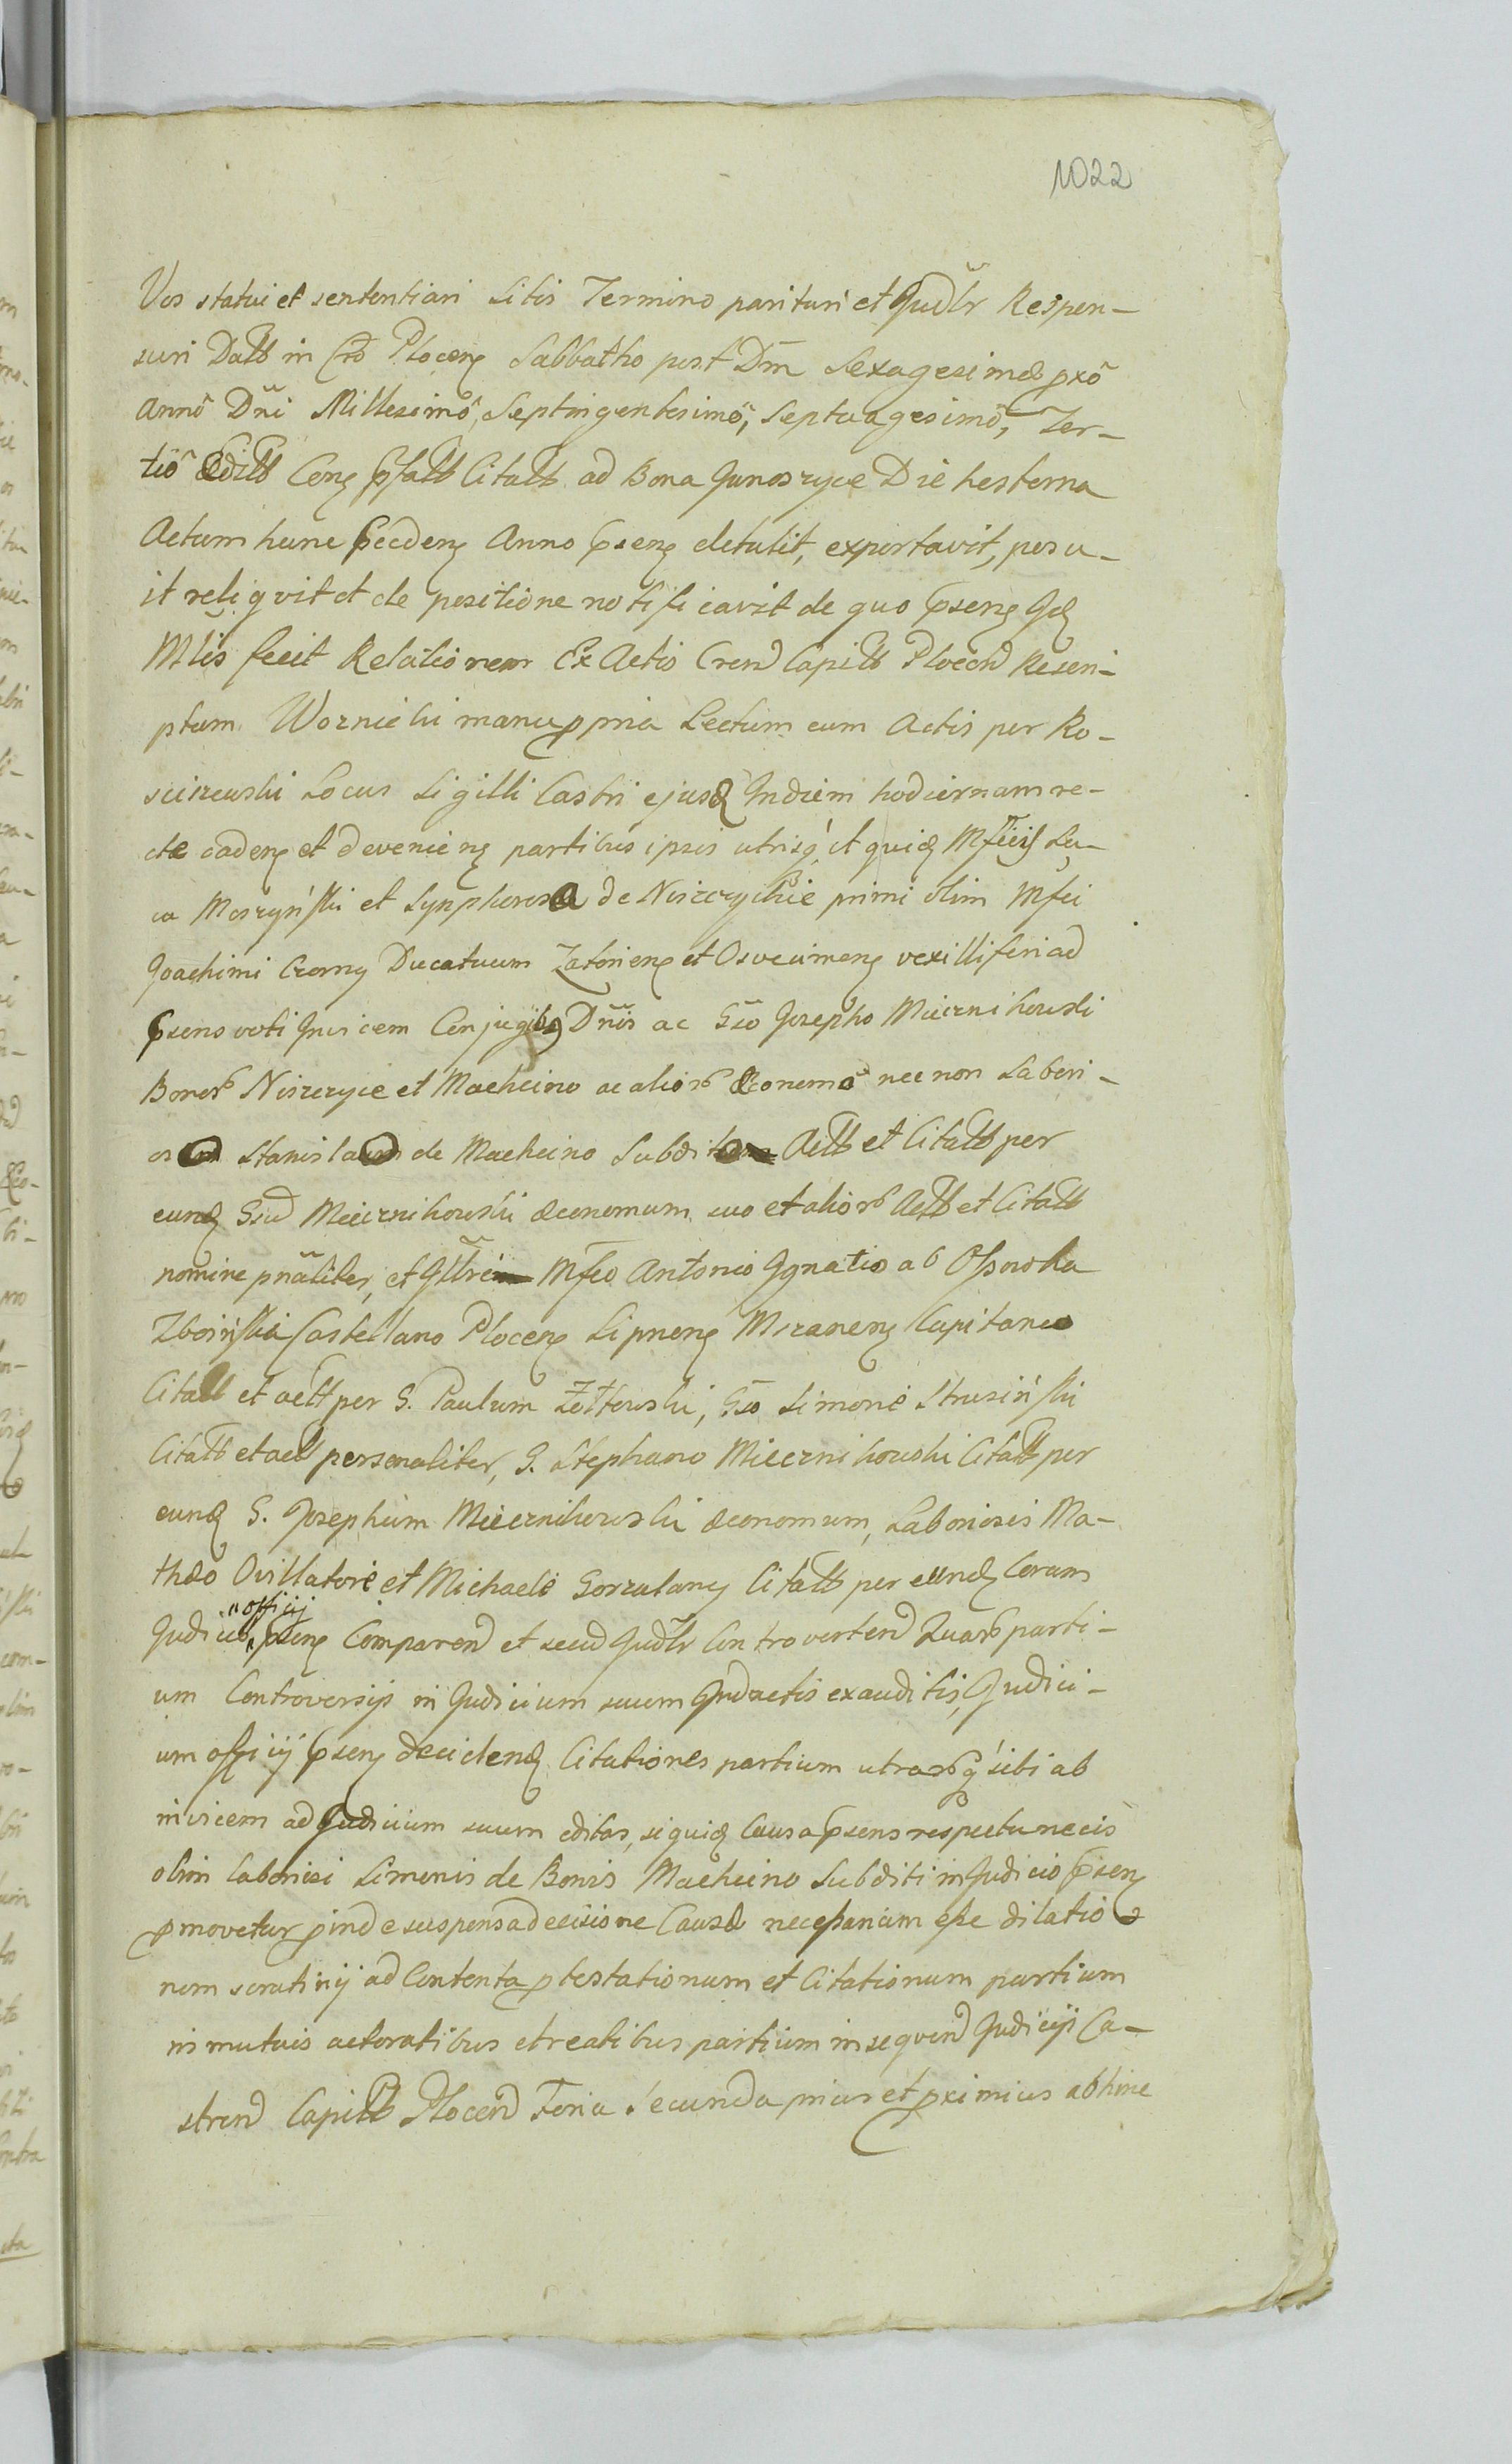 1022
Vos statui et sententiari Litis Termino parituri et Judlr Respon-
suri Datt in Cro Plocen Sabbatho post Dm Sexagesimæ pxo
Annô Dni Millesimô, Septingentesimô, Septuagesimô, Ter-
tiô Editt Cen psatt Citatt ad Bona Junoszyce Die hesterna
Actum hunc pcden Anno psen detulit, exportavit, posu-
it reliqvit et de positione notificavit de quo psen Jdq
Mlis fecit Relationem Ex Actis Crend Capitt Plocen Rescri-
ptum Woznicki manu ppria Lectum cum Actis per Ko-
sciszewski Locus Sigilli Castri ejusd In diem hodiernam re-
cte caden et devenien partibus ipsis utrisq, ut quid Mfcis Lu-
ca Moszyński et Symphorosa de Niszczychie primi olim Mfci
Joachimi Czerny Ducatuum Zatorien et Osvecimen vexilliferi ad
psens voti Invicem Conjugibq Dnis ac Gso Josepho Miecznikowski
Bonor Niszczyce et Machcino ac alior Œconemo nec non Labori-
os Stanislao de Machcino Subdit Actt et Citatt per
eund Gsud Miecznikowski Œconomum suo et alior Actt et Citatt
nomine pnaliter, et Jllri Mfco Antonio Jgnatio ab Ossowka
Zboiński Castellano Plocen Lipnen Mszanen Capitaneo
Citatt et actt per G. Paulum Zołtowski, Gso Simone Strusiński
Citatt et actt personaliter, G. Stephano Miecznikowski Citatt per
eund G. Josephum Miecznikowski Œconomum, Laboriosis Ma-
thæo Ovillatore et Michaele Gorzalany Citatt per eund Coram
officij
Judicio psen Comparend et secud Judlr Controvertend Quar parti-
um Controversijs in Judicium suum Inductis exauditis, Judici-
um officij psen decidend Citationes partium utrarq sibi ab
invicem ad Judicium suum editas, siquid Causa psens respectu necis
olim laboriosi Simonis de Bonis Machcino Subditi in Judicio psen
pmovetur pinde suspensa decisione Causæ necessariam esse dilatio
nem scrutinij ad Contenta ptestationum et Citationum partium
in mutuis actoratibus et reatibus partium in seqvend Judicijs Ca-
strend Capitt Plocend Feria Secunda prius et pximius abhinc